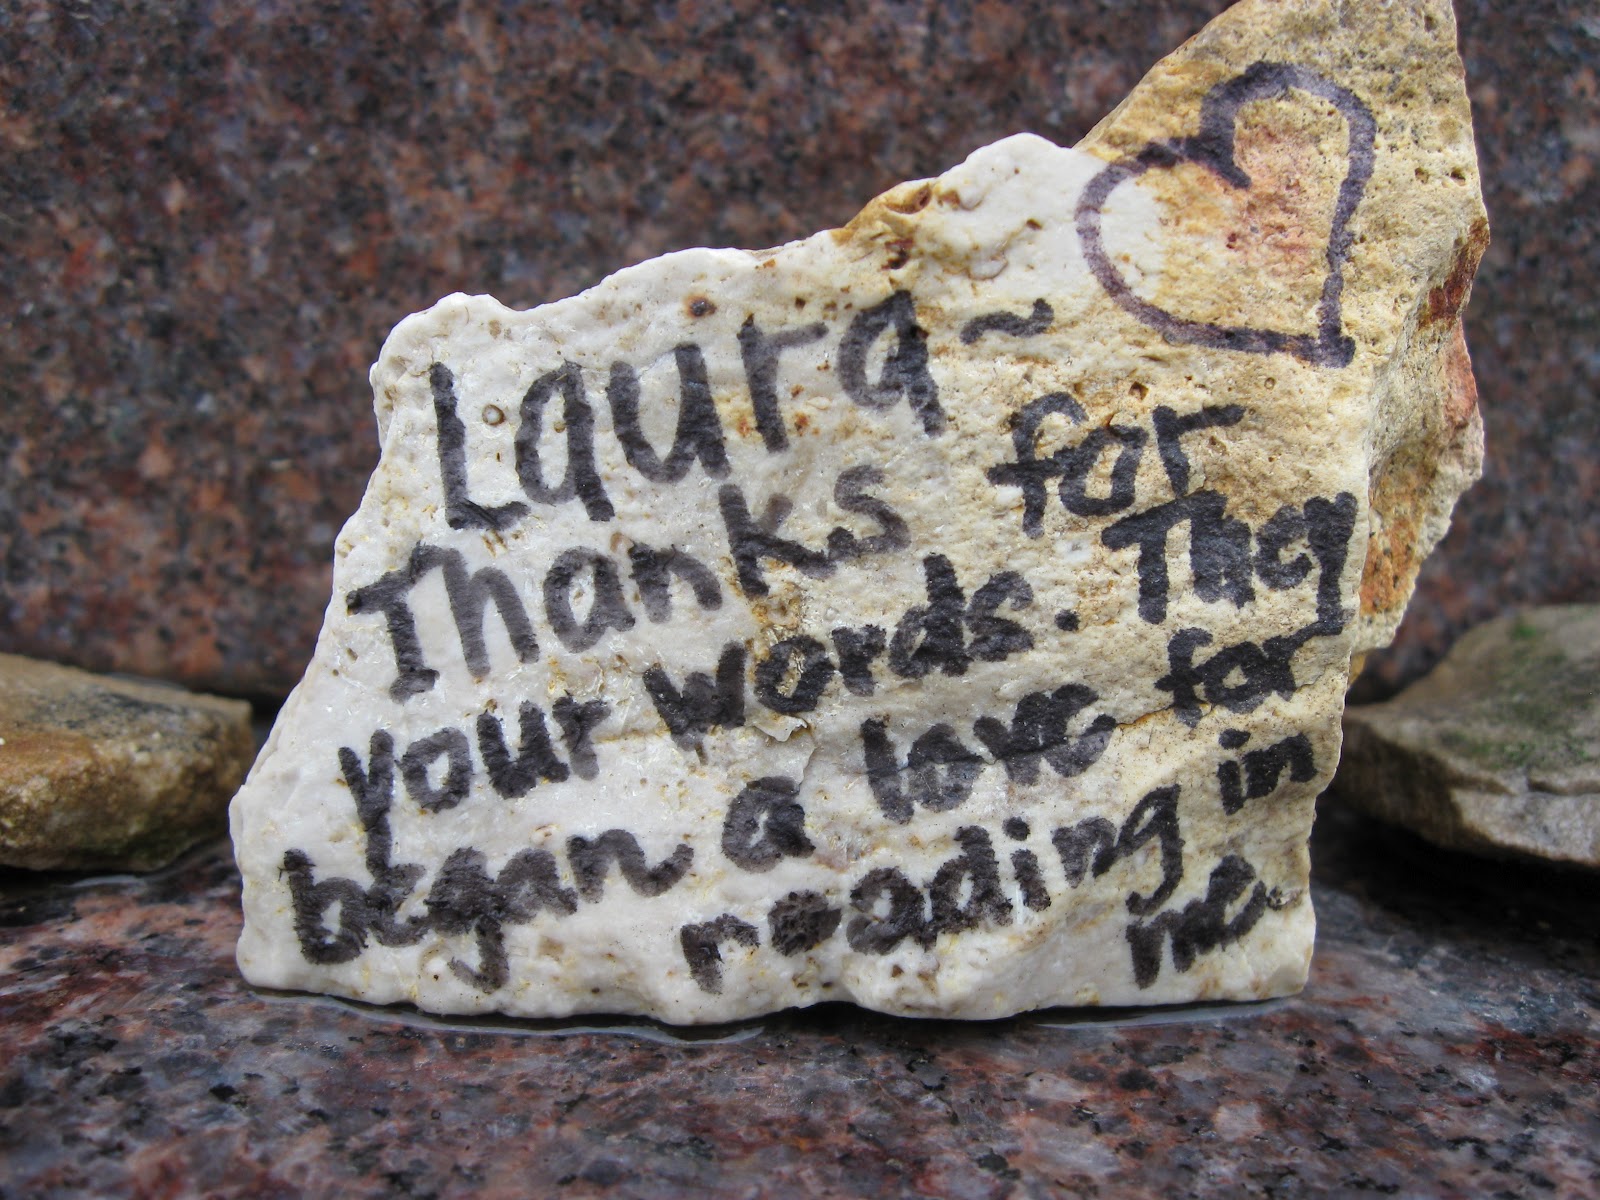 Laura~
Thanks for
your words. They
began a love for
reading in
me.